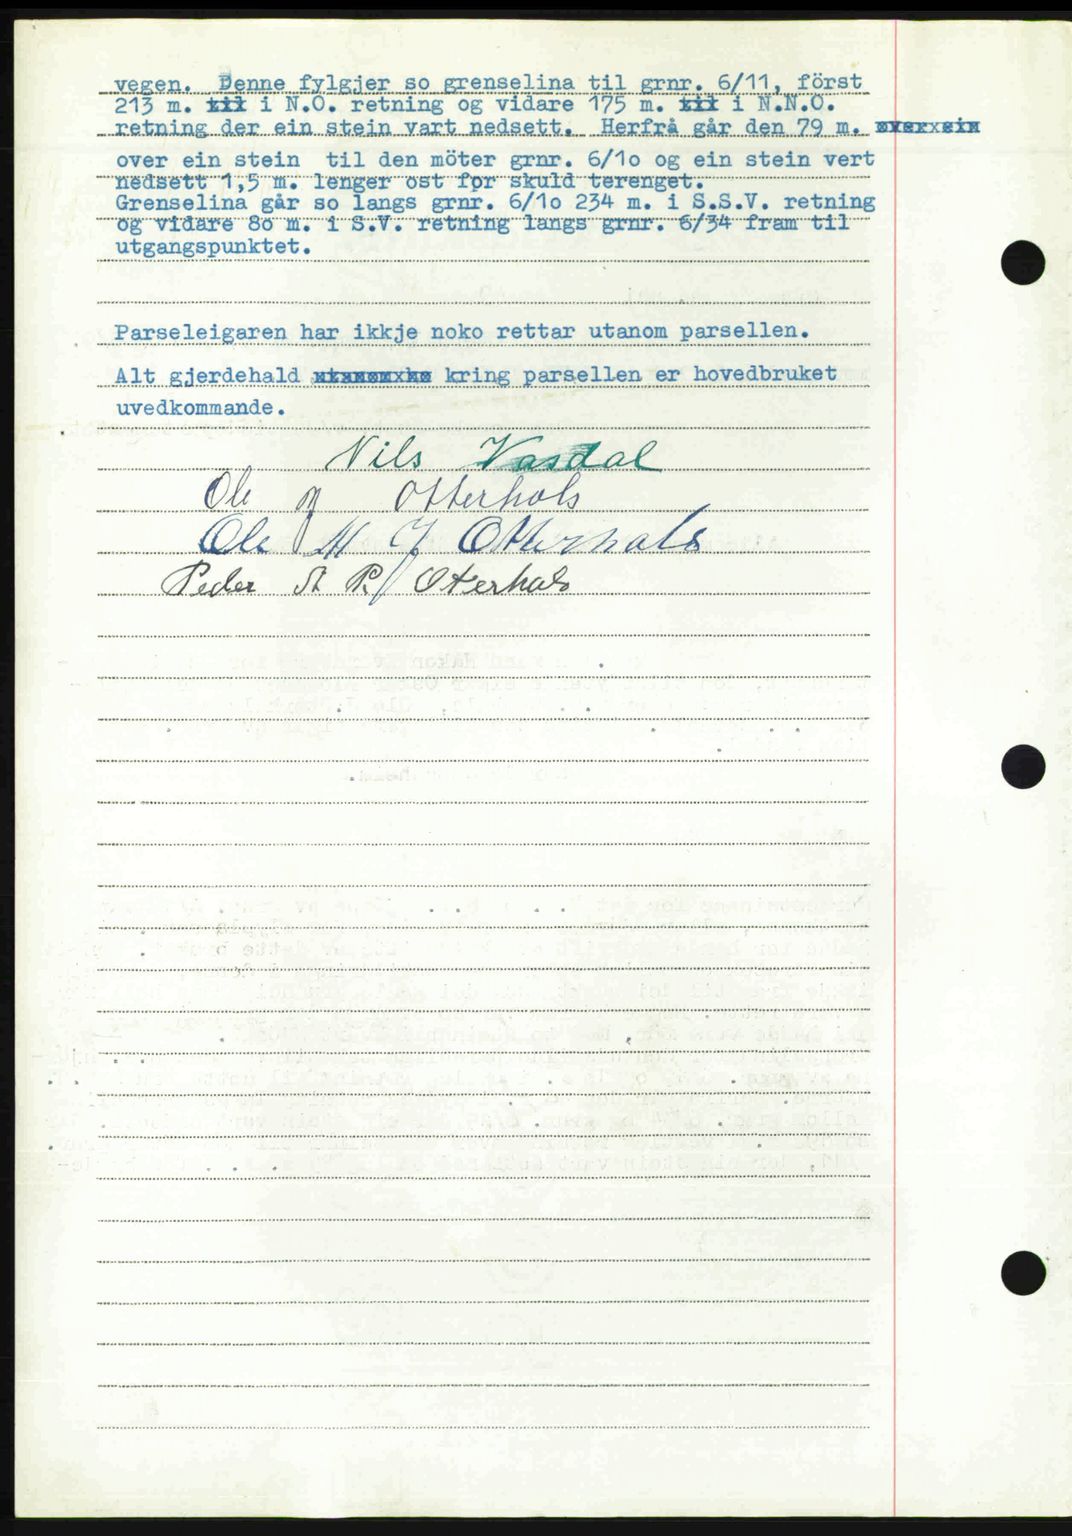 vegen.  Denne fylgjer so grenselina til grnr. 6/11, först
213 m. i N.O. retning og vidare 175 m. i N.N.O.
retning der ein stein vart nedsett.  Herfrå går den 79 m.
over ein stein  til den möter grnr. 6/1o og ein stein vert
nedsett 1,5 m. lenger ost for skuld terenget.
Grenselina går so langs grnr. 6/1o 234 m. i S.S.V. retning
og vidare 8o m. i S.V. retning langs grnr. 6/34 fram til
utgangspunktet.
Parseleigaren har ikkje noko rettar utanom parsellen.
Alt gjerdehald kring parsellen er hovedbruket
uvedkommande.
Nils Vasdal
Ole Otterhals
Ole M J Otterhals
Peder A P. Oterhals